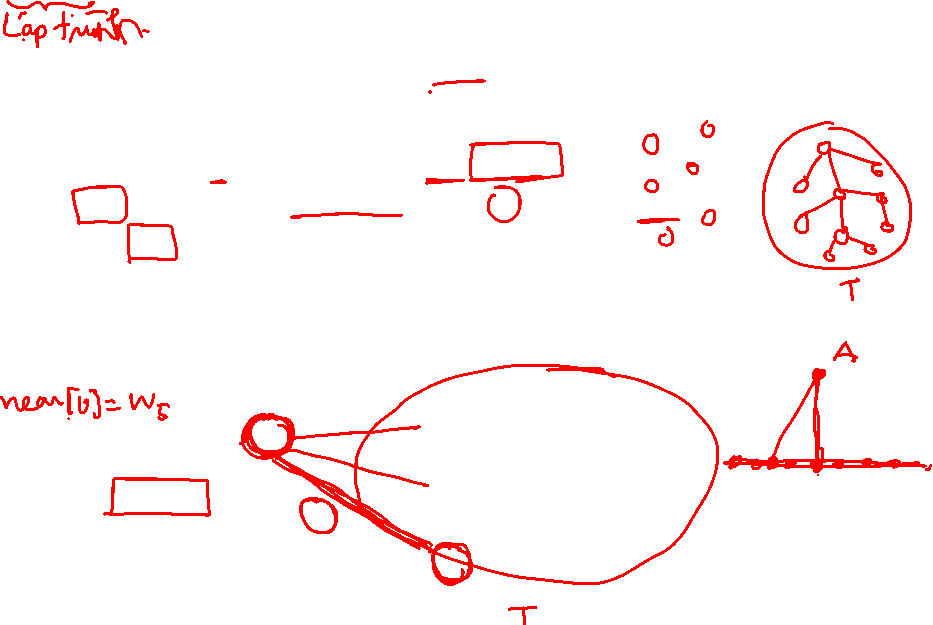 Lập trình
T
A
near[v] = w₅
T